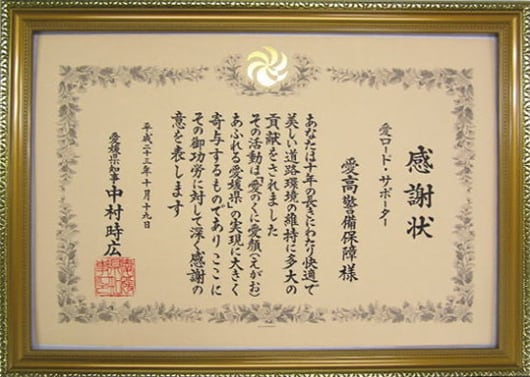 感謝状
愛ロード・サポーター
愛高警備保障様
あなたは十年の長きにわたり快適で
美しい道路環境の維持に多大の
貢献をされました
その活動は「愛のくに愛顔(えがお)
あふれる愛媛県」の実現に大きく
寄与するものでありここに
その御功労に対して深く感謝の
意を表します
平成二十三年十月十九日
愛媛県知事 中村時広